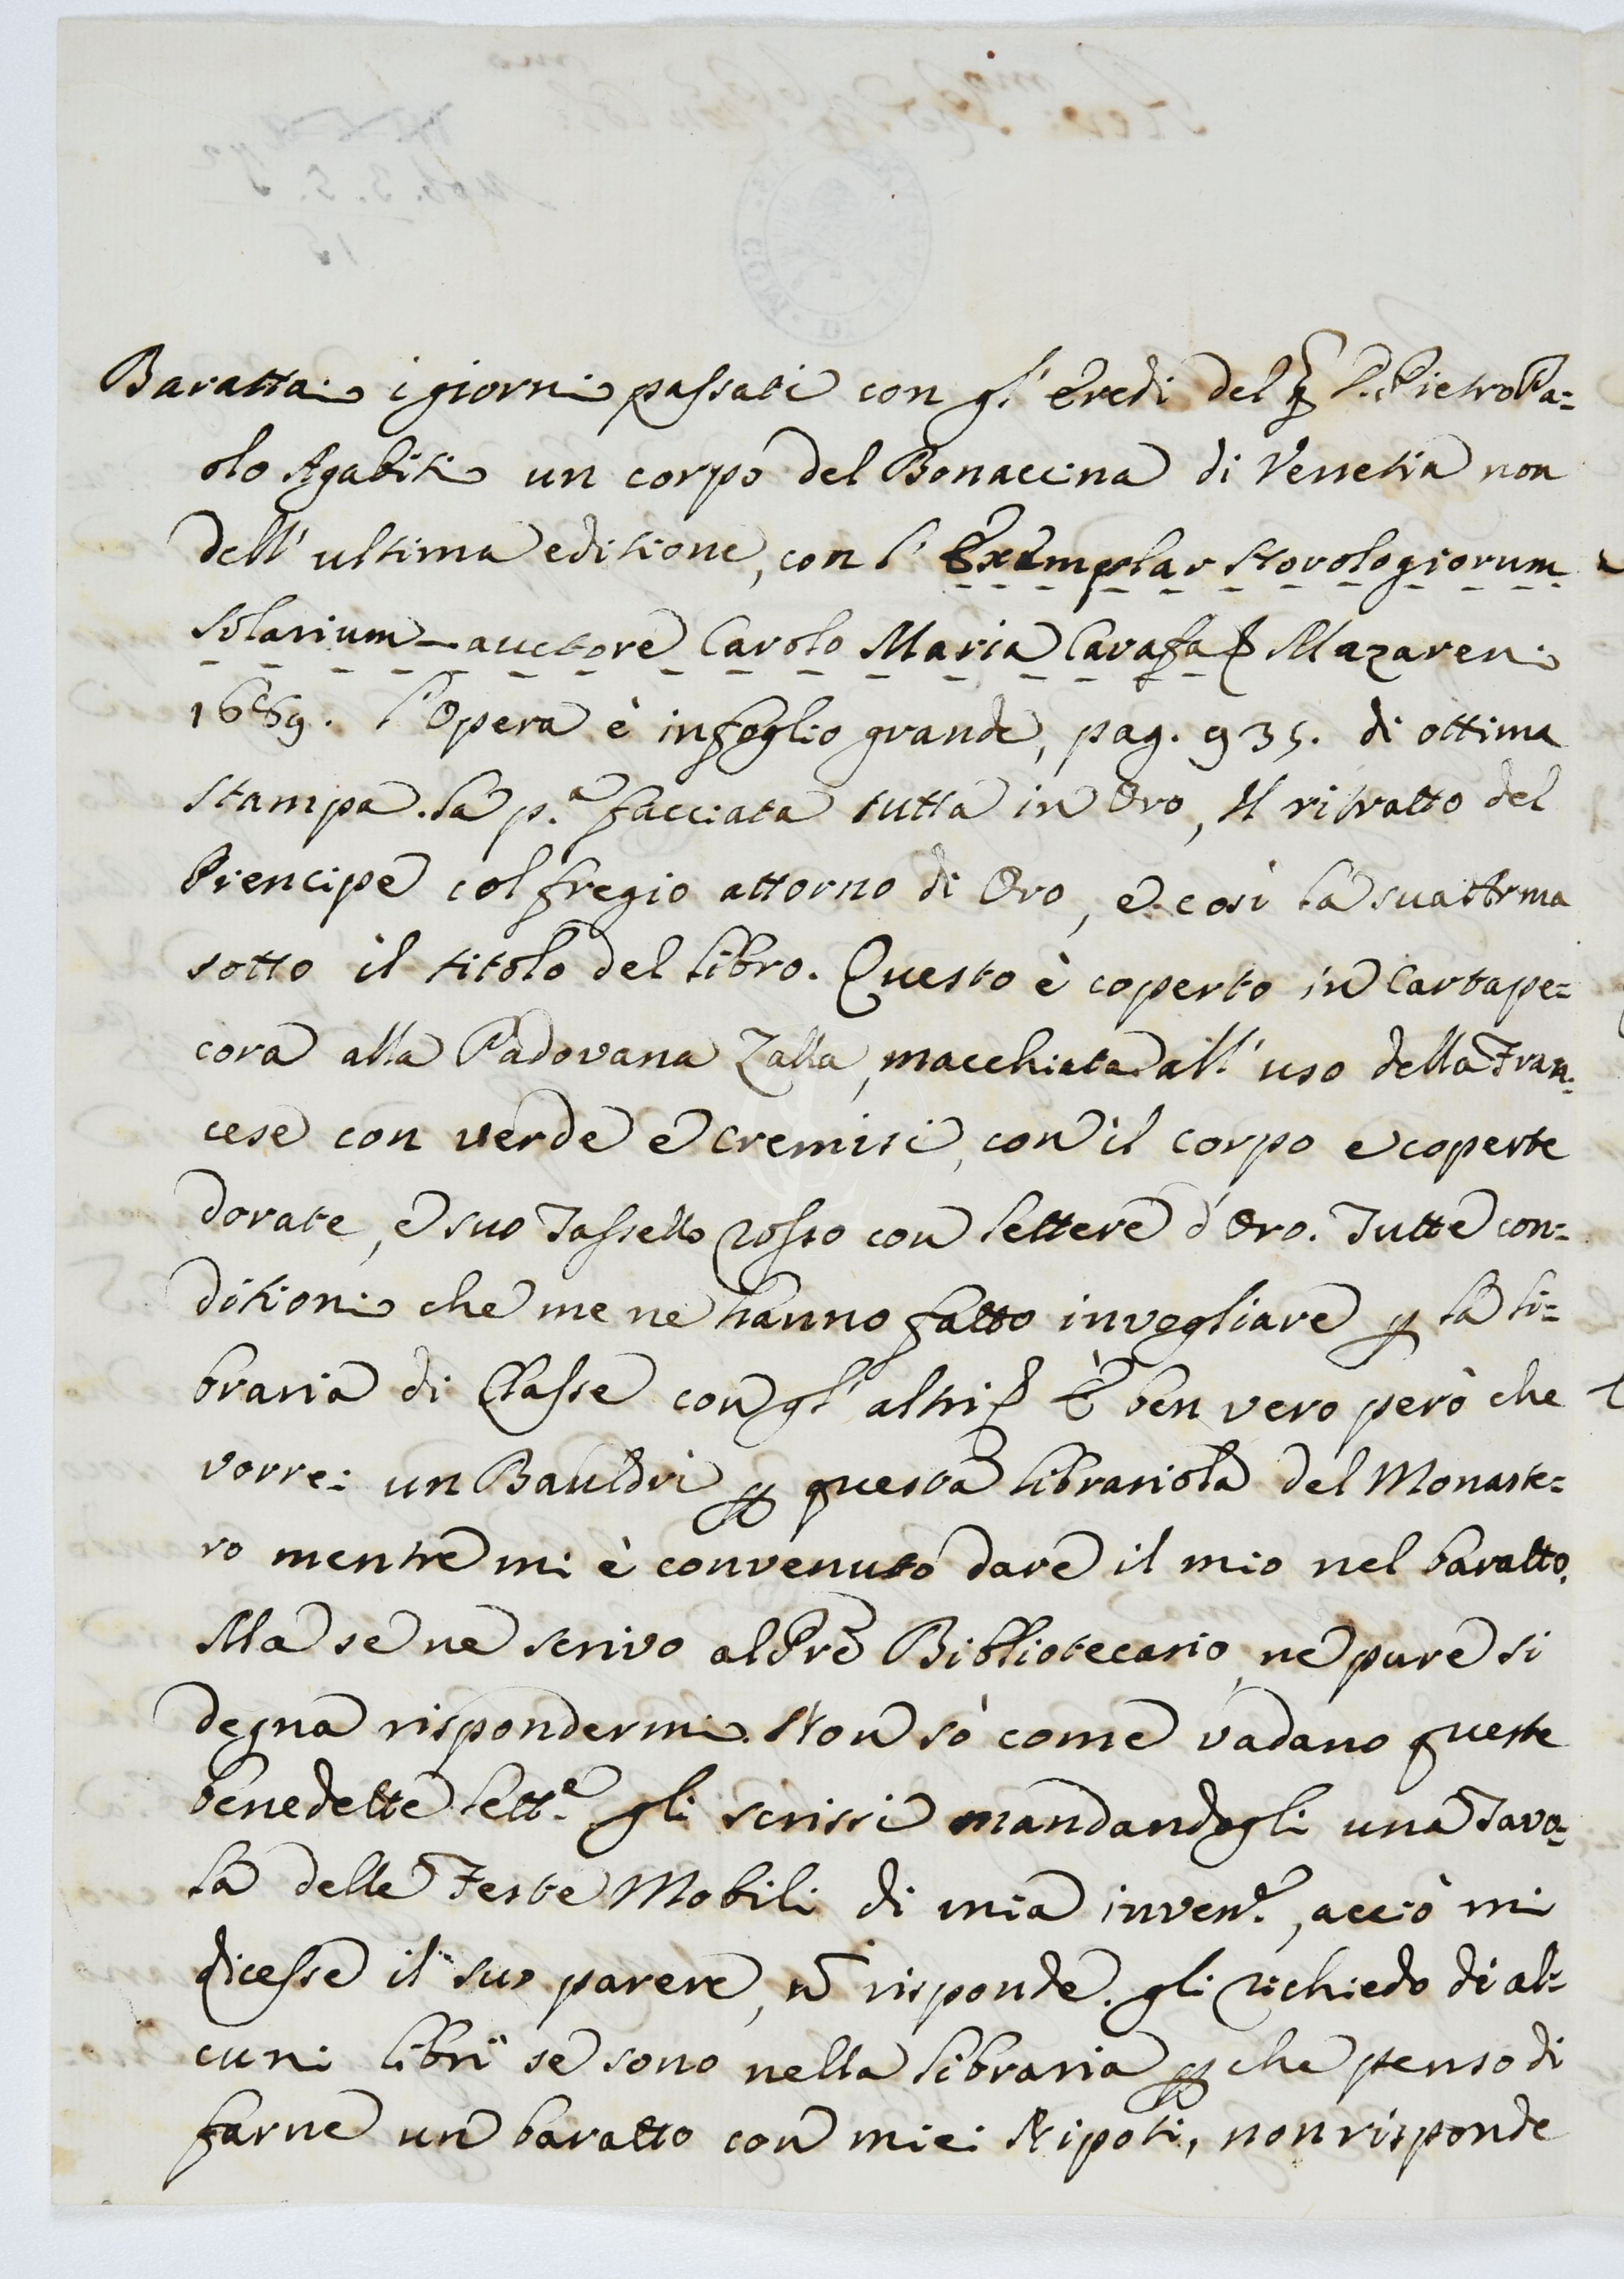 Barattai i giorni passati con gl' Eredi del q. P. Pietro Pa=
olo Agabiti un corpo del Bonaccina di Venetia non
dell' ultima editione, con l' Exemplar Horologiorum
solarium auctore Carolo Maria Carafa Nazareni
1689. l'Opera è in foglio grande, pag. 935. di ottima
stampa. la p.ª facciata tutta in Oro, Il ritratto del
Prencipe col fregio attorno di Oro, e così la sua Arma
sotto il titolo del libro. Questo è coperto in Cartape=
cora alla Padovana Zalla, macchiata all' uso della Fran=
cese con verde e cremisi, con il corpo e coperte
dorate, e suo Tassello rosso con lettere d'Oro. Tutte con=
ditioni che me ne hanno fatto invogliare p la li=
braria di Classe con gl' altri. È ben vero però che
vorrei un Bauldri p questa librariola del Monaste=
ro mentre mi è convenuto dare il mio nel baratto.
Ma se ne scrivo al Pre Bibliotecario, ne pure si
degna rispondermi. Non sò come vadano queste
benedette lett.e gli scrissi mandandogli una Tavo=
la delle Feste Mobili di mia inven.e, acciò mi
dicesse il suo parere, ñ risponde. gli richiedo di al=
cuni libri se sono nella libraria p che penso di
farne un baratto con miei Nipoti, non risponde